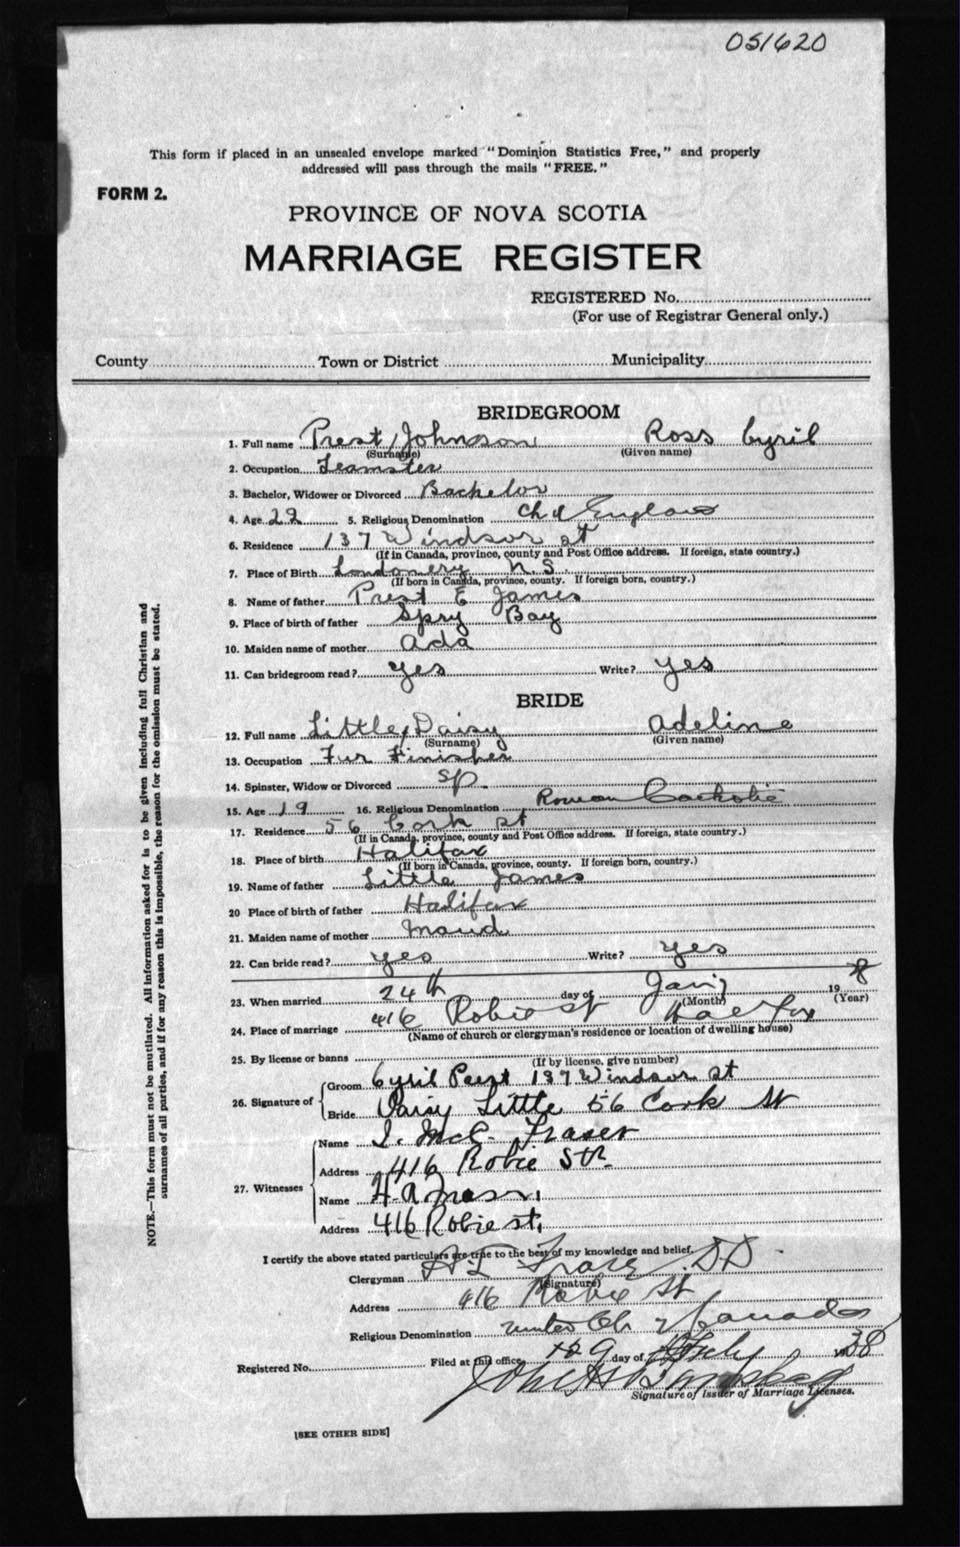 051620
This form if placed in an unsealed envelope marked "Dominion Statistics Free," and properly
addressed will pass through the mails "FREE."
FORM 2.
PROVINCE OF NOVA SCOTIA
MARRIAGE REGISTER
REGISTERED No.
(For use of Registrar General only.)
County Town or District Municipality
BRIDEGROOM
1. Full name Prest, Johnson Ross Cyril
(Surname) (Given name)
2. Occupation Teamster
3. Bachelor, Widower or Divorced Bachelor
4. Age 22 5. Religious Denomination Ch of England
6. Residence 137 Windsor st
(If in Canada, province, county and Post Office address. If foreign, state country.)
7. Place of Birth Londonery N.S.
(If born in Canada, province, county. If foreign born, country.)
8. Name of father Prest E James
9. Place of birth of father Spry Bay
10. Maiden name of mother Ada
11. Can bridegroom read? yes Write? yes
BRIDE
12. Full name Little, Daisy Adeline
(Surname) (Given name)
13. Occupation Fur Finisher
14. Spinster, Widow or Divorced Sp.
15. Age 19 16. Religious Denomination Roman Catholic
17. Residence 56 Cork st
(If in Canada, province, county and Post Office address. If foreign, state country.)
18. Place of birth Halifax
(If born in Canada, province, county. If foreign born, country.)
19. Name of father Little James
20 Place of birth of father Halifax
21. Maiden name of mother Maud
22. Can bride read? yes Write? yes
23. When married 24th day of 19 8
(Month) (Year)
24. Place of marriage 416 Robie st Halifax
(Name of church or clergyman's residence or location of dwelling house)
25. By license or banns
(If by license, give number)
26. Signature of Groom Cyril Prest 137 Windsor st
Bride Daisy Little 56 Cork St
27. Witnesses Name McC. Fraser
Address 416 Robie Str.
Name H.A.
Address 416 Robie st,
I certify the above stated particulars are true to the best of my knowledge and belief.
Clergyman DD
(Signature)
Address 416 Robie St
Religious Denomination United Ch of Canada
Registered No. Filed at this office 29 day of 1938
Signature of Issuer of Marriage Licenses.
[SEE OTHER SIDE]
NOTE.—This form must not be mutilated. All information asked for is to be given including full Christian and
surnames of all parties, and if for any reason this is impossible, the reason for the omission must be stated.